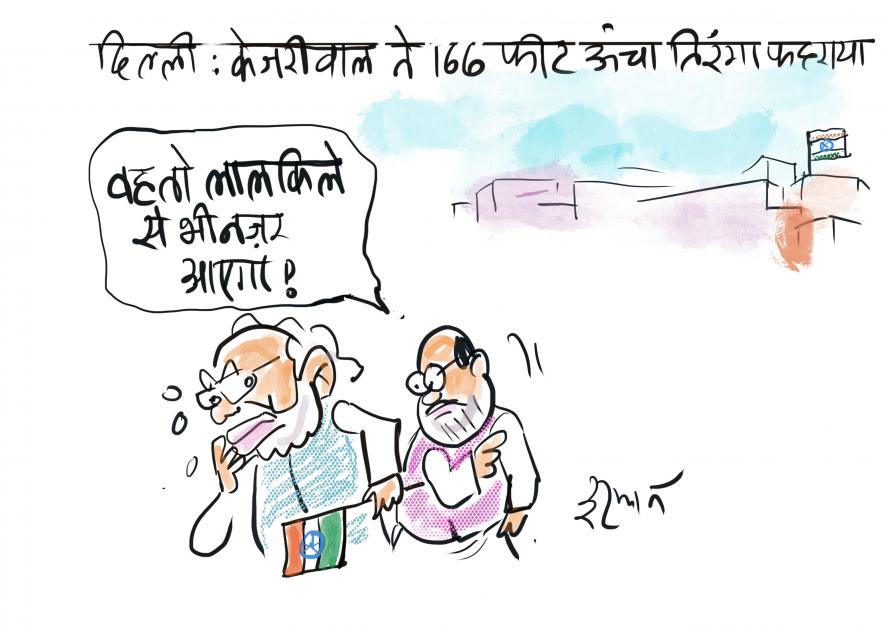 दिल्ली : केजरीवाल ने 166 फीट ऊंचा तिरंगा फहराया
वह तो लाल किले
से भी नज़र
आएगा !
इरफान